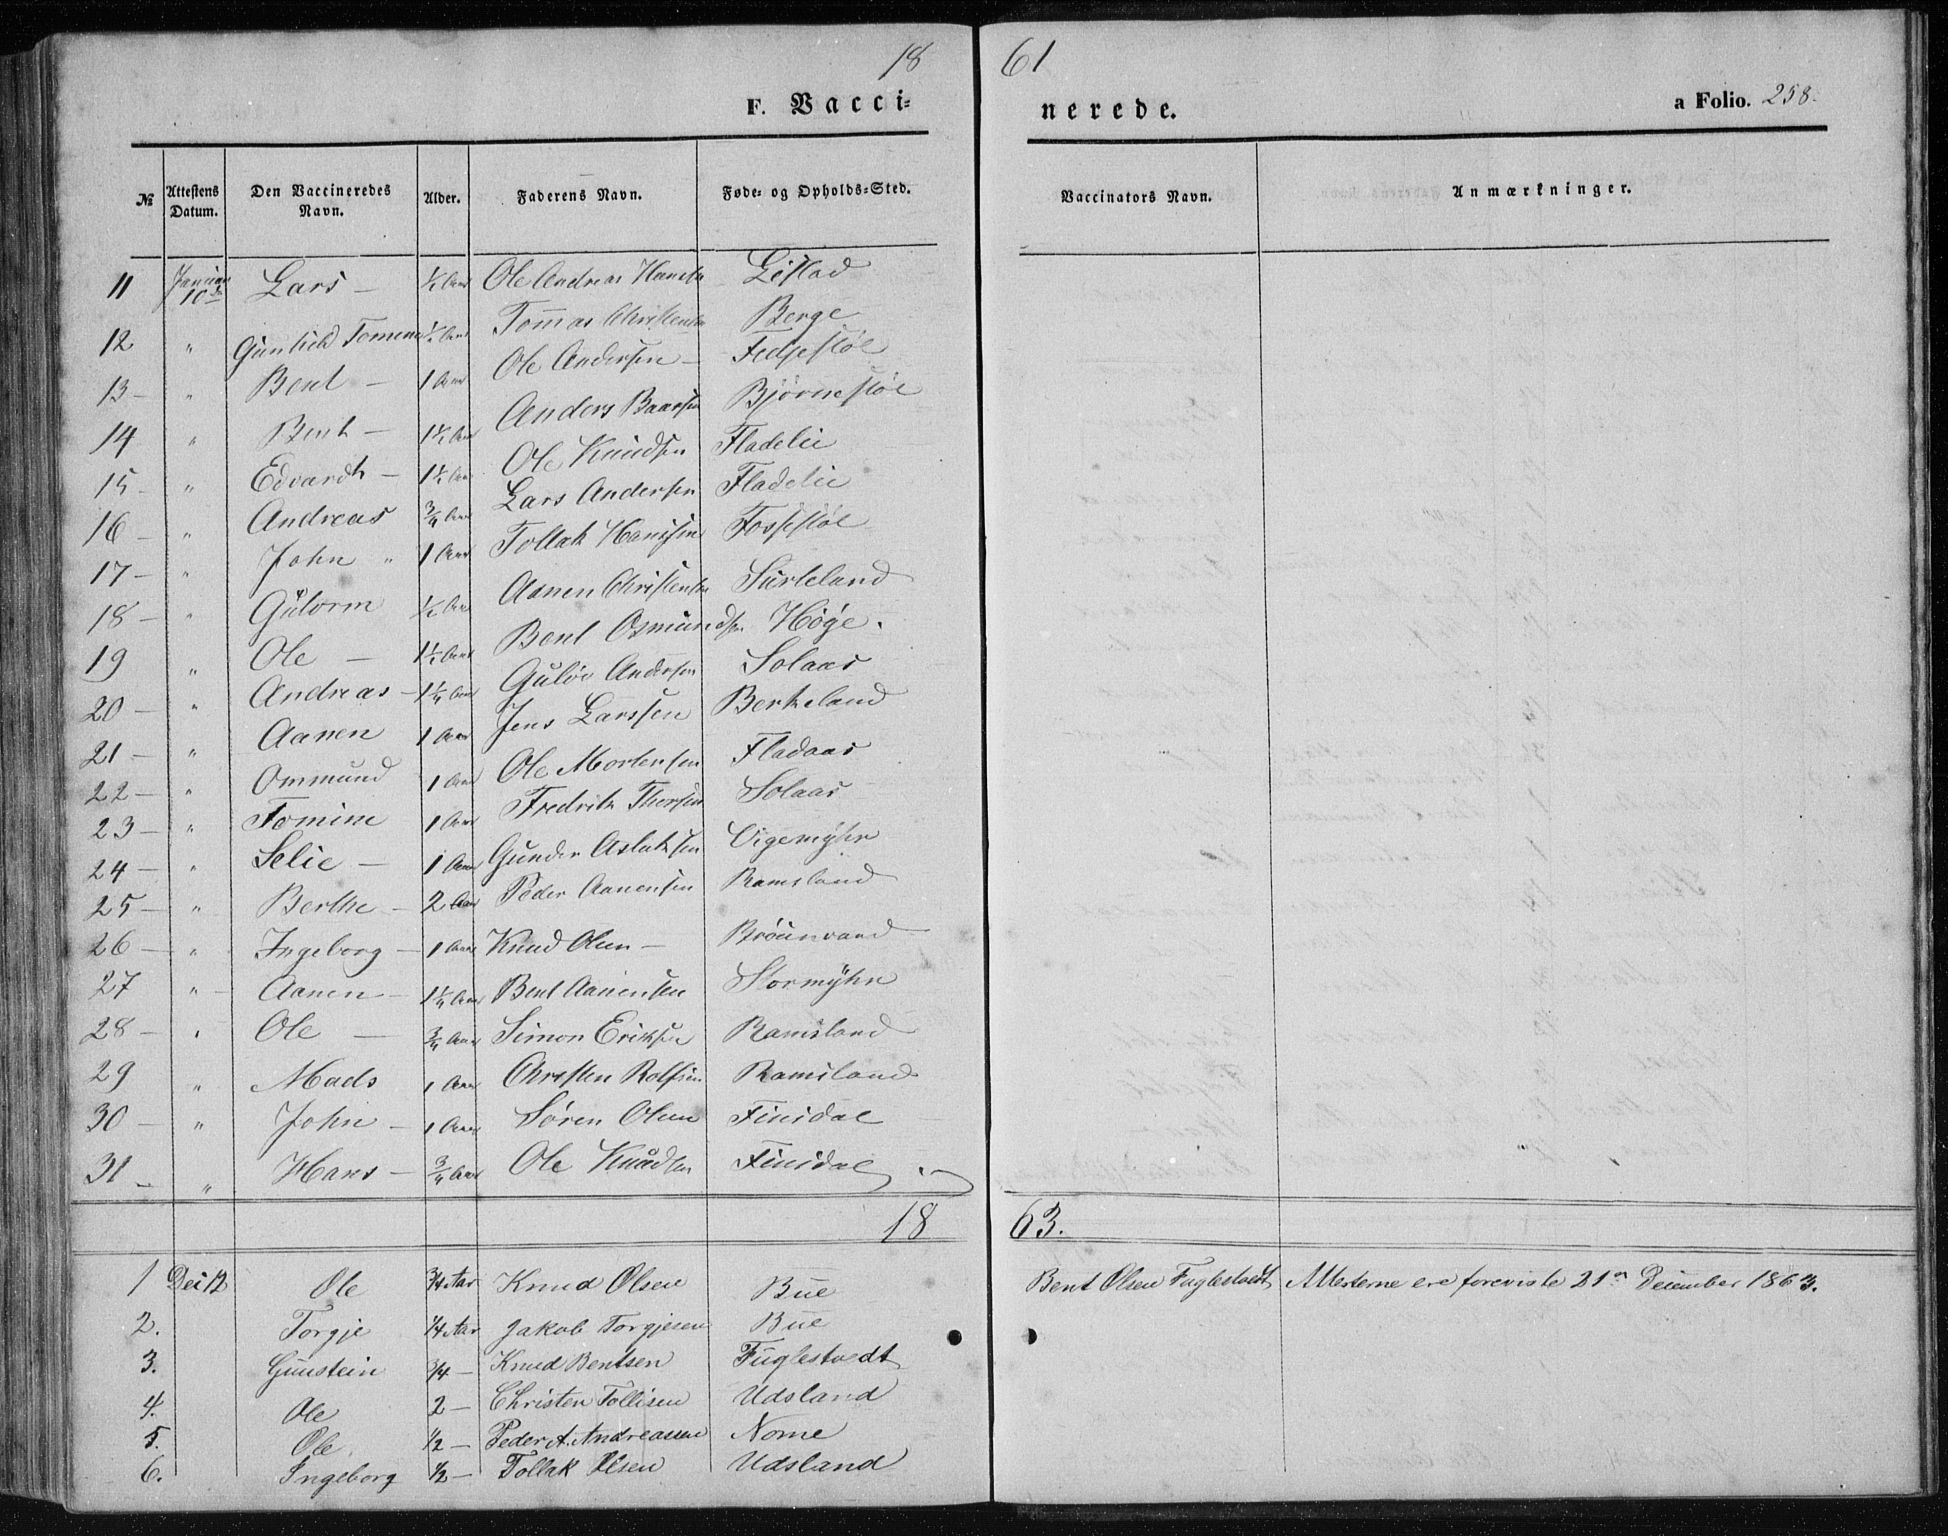 18 61
F. Vacci- nerede. a Folio. 258.
№ Attestens Datum. Den Vaccineredes Navn. Alder. Faderens Navn. Føde- og Opholds-Sted. Vaccinators Navn. Anmærkninger.
11 Januar 10de Lars – ½ Aar Ole Andreas Hansen Listad
12 " Gunhild Tomine ½ Aar Tomas Christensen Berge
13 – " Bent – 1 Aar Ole Andersen – Fedjestøl
14 " Bent – 1½ Aar Anders Baarsen Bjørnestøl
15 – " Edvardt – 1½ Aar Ole Knudsen Fladelie
16 – " Andreas ¾ Aar Lars Andersen Fladelie
17 – " John " 1 Aar Tollak Hansen Fossestøl
18 – " Gutorm ½ Aar Aanen Christensen Surteland
19 " Ole – 1½ Aar Bent Osmundsen Høge.
20 – " Andreas – 1¼ Aar Guløv Andersen Solaas
21 – " Aanen 1 Aar Jens Larssen Berkeland
22 – " Ommund 1 Aar Ole Mortensen Fladaas
23 – " Tomine 1 Aar Fredrik Thorsen Solaas
24 – " Selie – 1 Aar Gunder Aslaksen Vigemyhr
25 – " Berthe – 2 Aar Peder Aanensen Ramsland
26 – " Ingeborg – 1 Aar Knud Olsen – Brøunvand
27 " – Aanen – 1¼ Aar Bent Aanensen Stormyhr
28 – " Ole – ¾ Aar Simon Eriksen Ramsland
29 " Mads 1 Aar Christen Rolfsen Ramsland
30 – " John – 1 Aar Søren Olsen Finsdal
31 – " Hans – ¾ Aar Ole Knudsen Finsdal
18 63.
1 Dec 12 Ole ¾ Aar Knud Olsen Bue Bent Olsen Fuglestvedt Attesterne ere foreviste 21de December 1863.
2. Torgje ¼ Aar Jakob Torgjesen Bue
3. Gunstein ¾ – Knud Bentsen Fuglestvedt
4. Ole 2 – Christen Tollisen Udsland
5. Ole. ½ – Peder A. Andreassen Nome
6. Ingeborg ½ – Tollak Olsen Udsland